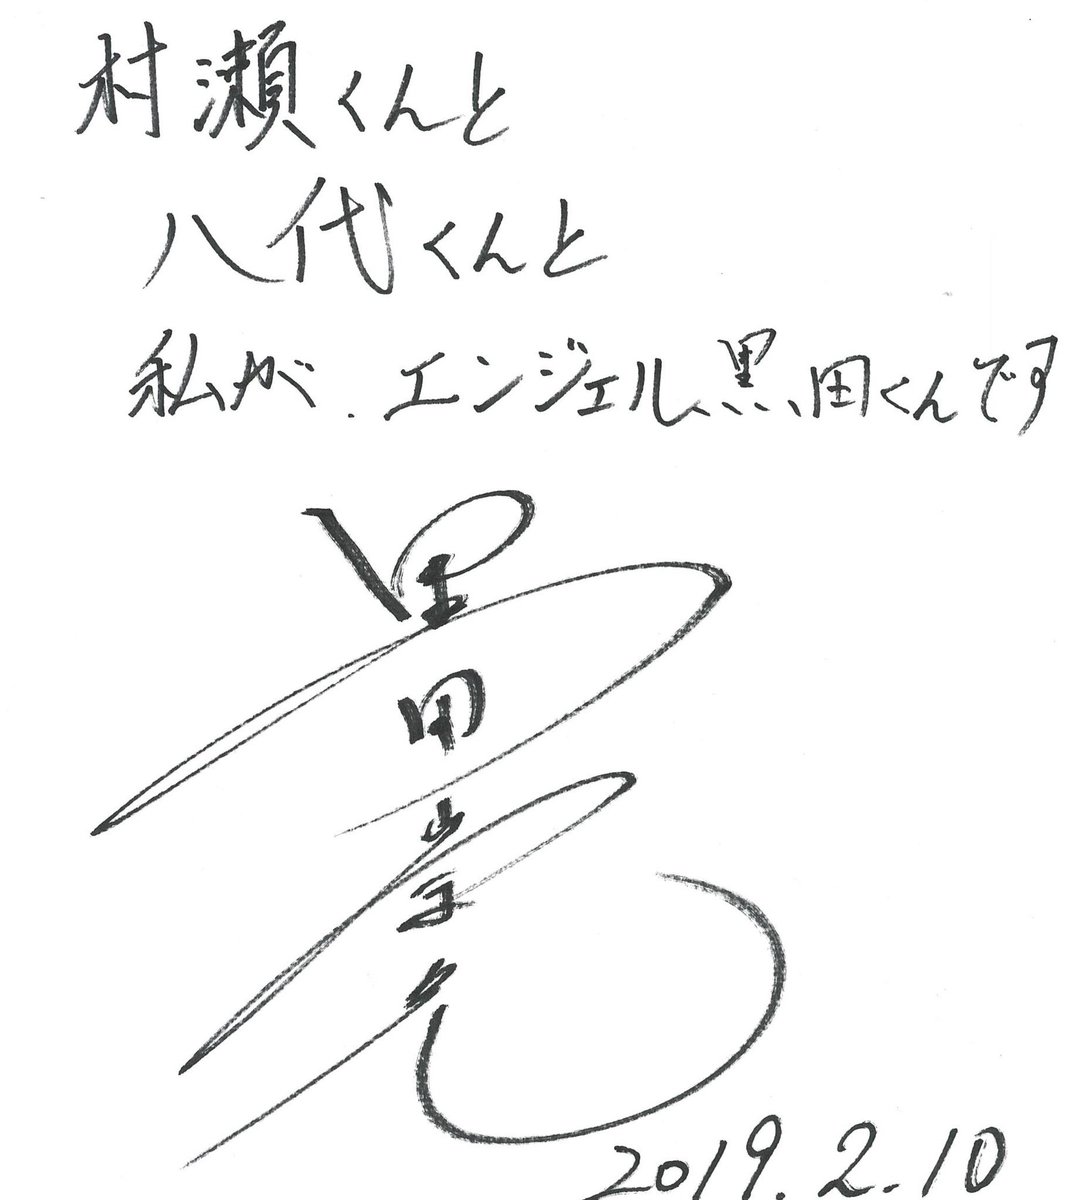 村瀬くんと
八代くんと
私が、エンジェル、黒田くんです
黒田崇矢
2019.2.10